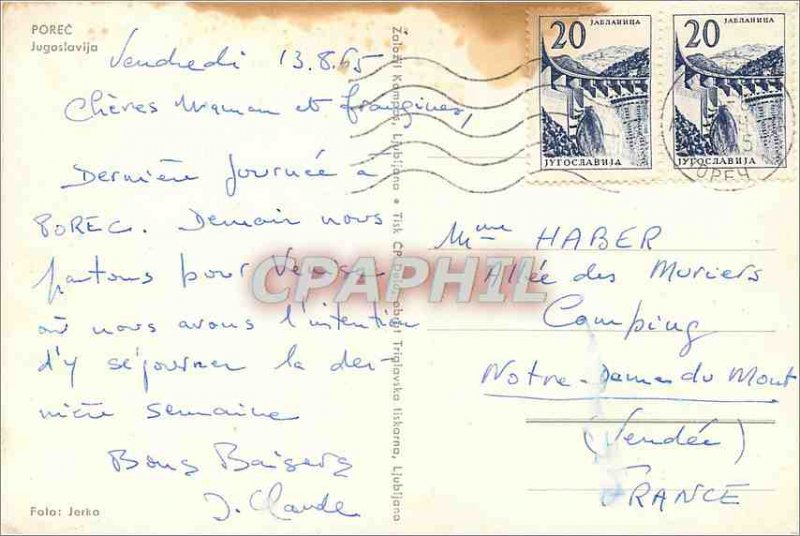 POREČ
Jugoslavija
Vendredi 13.8.65
Chères Maman et frangines,
Dernière journée à
POREC. Demain nous
partons pour Venise
où nous avons l'intention
d'y séjourner la der-
nière semaine
Bons Baisers
J. Claude
Foto: Jerko
Založil Kompas, Ljubljana • Tisk ČP Delo, obrat Triglavska tiskarna, Ljubljana
20
ЈАБЛАНИЦА
ЈУГОСЛАВИЈА
20
ЈАБЛАНИЦА
ЈУГОСЛАВИЈА
Mme HABER
Allée des Muriers
Camping
Notre-Dame du Mont
(Vendée)
FRANCE
CPAPHIL